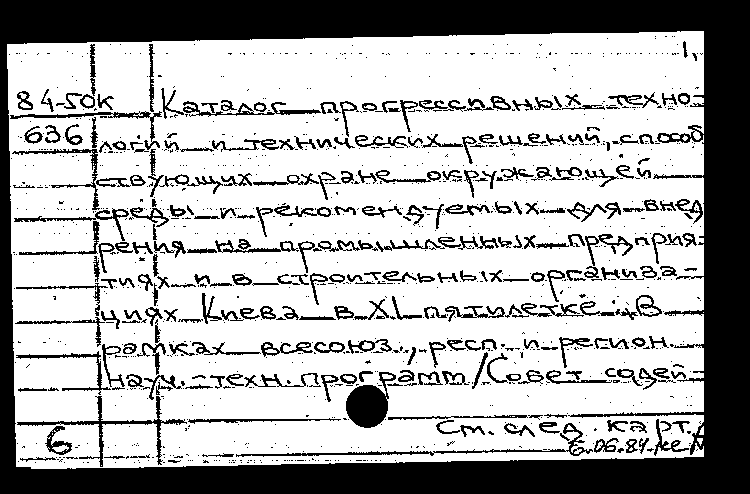 1,
84-50к Каталог прогрессивных техно-
636 логий и технических решений, способ
ствующих охране окружающей
среды и рекомендуемых для внед
рения на промышленных предприя-
тиях и в строительных организа-
циях Киева в XI пятилетке : В
рамках всесоюз., респ. и регион.
науч.-техн. программ/Совет содей-
См. след. карт.
6 6.06.84.